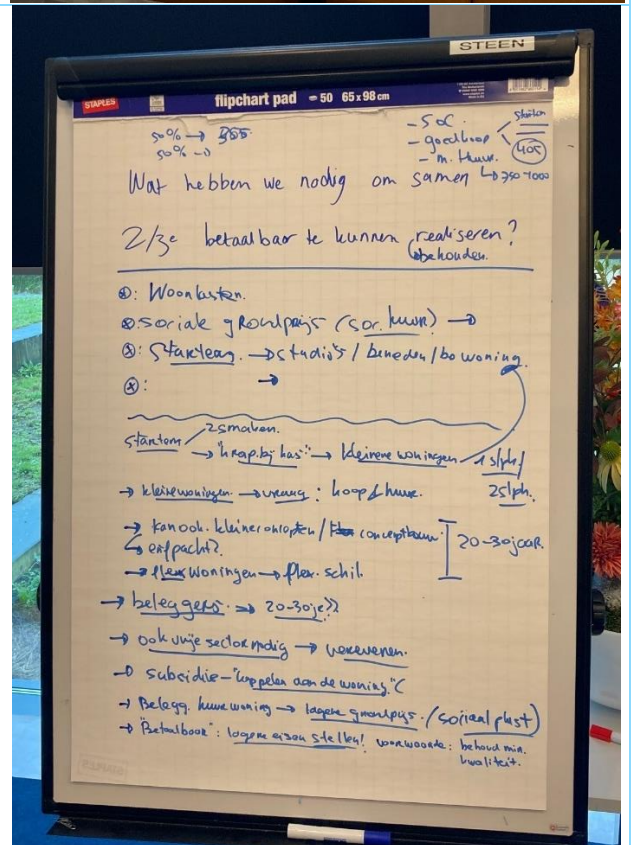 STEEN
STAPLES flipchart pad 50 65 x 98 cm
50% → 355
50% →
- SOC.
- goedkoop
- m. huur.
starters
405
↳ 750-1000
Wat hebben we nodig om samen
2/3e betaalbaar te kunnen realiseren?
behouden.
⊗: Woonlasten.
⊗: sociale grondprijs (soc. huur) →
⊗: Starterswon. → studio's / beneden / bo woning.
⊗: →
starters 2 smaken.
→ "krap bij kas" → kleinere woningen
1 slpk/
2 slpk.
→ kleine woningen → vraag: koop & huur.
→ kan ook. kleiner oprapten / conceptbouw.
↳ erfpacht?
→ flexwoningen → flex. schil.
20-30 jaar.
→ beleggers. → 20-30je??
→ ook vrije sector nodig → verevenen.
→ subsidie - "koppelen aan de woning."
→ Belegg. huurwoning → lagere grondprijs. / (sociaal plust)
→ "Betaalbaar": lagere eisen stellen! voorwaarde: behoud min.
kwaliteit.
STAPLES